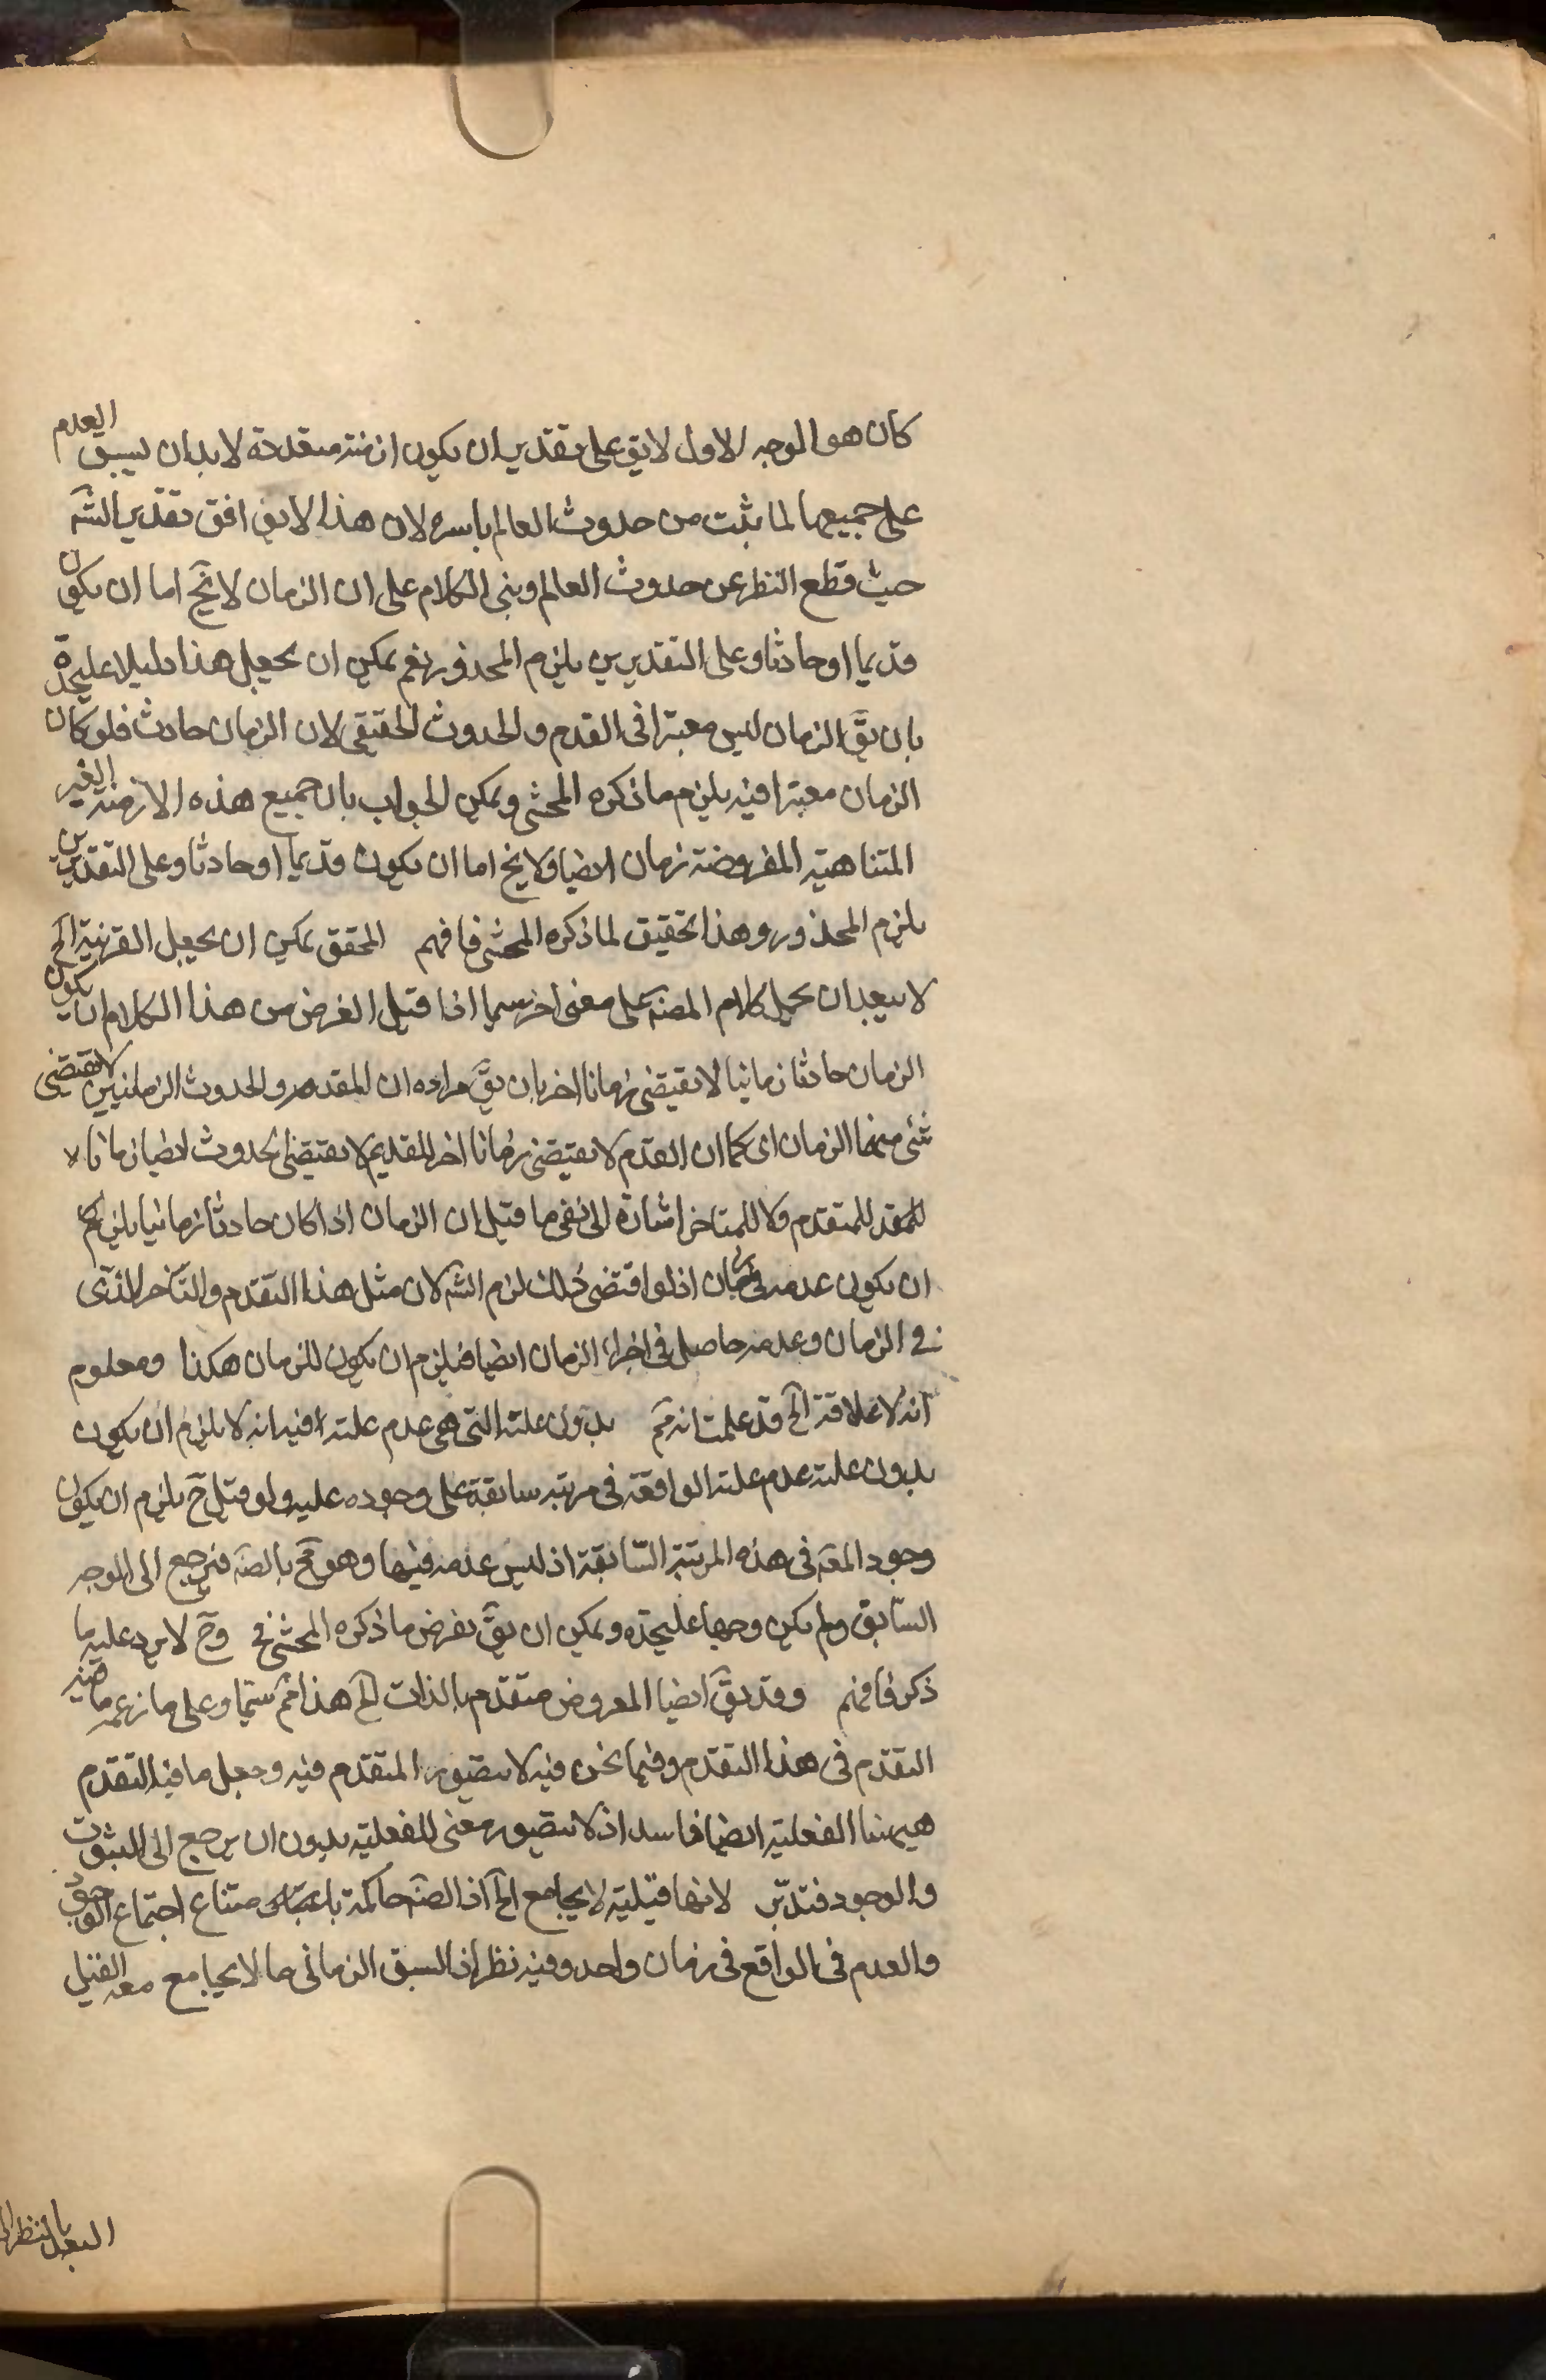 كان هو الوجه الاول لايق على تقدير ان يكون ازمنة متقدمة لابد ان يسبق العدم
على جميعها لما ثبت من حدوث العالم باسره لان هذا لا يوافق تقدير الشه
حيث قطع النظر عن حدوث العالم وبنى الكلام على ان الزمان لا يخ اما ان يكون
قديما او حادثا وعلى التقديرين يلزم المحذور نعم يمكن ان يجعل هذا دليلا عليحدة
بان يق الزمان ليس معتبرا فى القدم والحدوث الحقيقى لان الزمان حادث فلو كان
الزمان معتبرا فيه يلزم ما ذكره المحشى ويمكن الجواب بان جميع هذه الازمنة الغير
المتناهية المفروضة زمان ايضا ولا يخ اما ان يكون قديما او حادثا وعلى التقديرين
يلزم المحذور وهذا تحقيق لما ذكره المحشى فافهم المحقق يمكن ان يجعل القرينة الخ
لا يبعد ان يحمل كلام المصه على معنى اخر سيما اذا قيل الغرض من هذا الكلام ان يكون
الزمان حادثا زمانيا لا يقتضى زمانا اخر بان يق مراده ان القدم والحدوث الزمانيين لا يقتضى
شئى منهما الزمان اى كما ان القدم لا يقتضى زمانا اخر للقديم لا يقتضى الحدوث ايضا زمانا لا
للمتقدم ولا للمتاخر اشارة الى نفى ما قيل ان الزمان اذا كان حادثا زمانيا يلزم
ان يكون عدمه فى زمان اذ لو اقتضى ذلك لزم الشه لان مثل هذا التقدم والتأخر الذى
فى الزمان وعدمه حاصل فى اجزاء الزمان ايضا فيلزم ان يكون للزمان هكذا ومعلوم
انه لا علاقة الخ قد علمت انه مم بدون علته التى هى عدم علته افيد انه لا يلزم ان يكون
بدون علته عدم علته الواقعة فى مرتبه سابقة على وجوده عليه ولو قيل ح يلزم ان يكون
وجود المعه فى هذه المرتبة السابقة اذ ليس عدمه فيها وهو مح بالضه فيرجع الى الوجه
السابق ولم يكن وجها عليحده ويمكن ان يق بفرض ما ذكره المحشى فى وح لا يرد عليه ما
ذكر فافهم وقد يق ايضا المعروض متقدم بالذات الخ هذا مم سيما وعلى ما زعمه ما فيه
التقدم فى هذا التقدم وفيما نحن فيه لا يتصور المتقدم فيه وجعل ما فيه التقدم
هيهنا الفعلية ايضا فاسد اذ لا يتصور معنى للفعلية بدون ان يرجع الى الثبوت
والوجود فتدبر لانها قبلية لا يجامع الخ اذ الضه حاكمة بامتناع اجتماع الوجود
والعدم فى الواقع فى زمان واحد وفيه نظر اذ السبق الزمانى ما لا يجامع معه القبل
البعد بالنظر